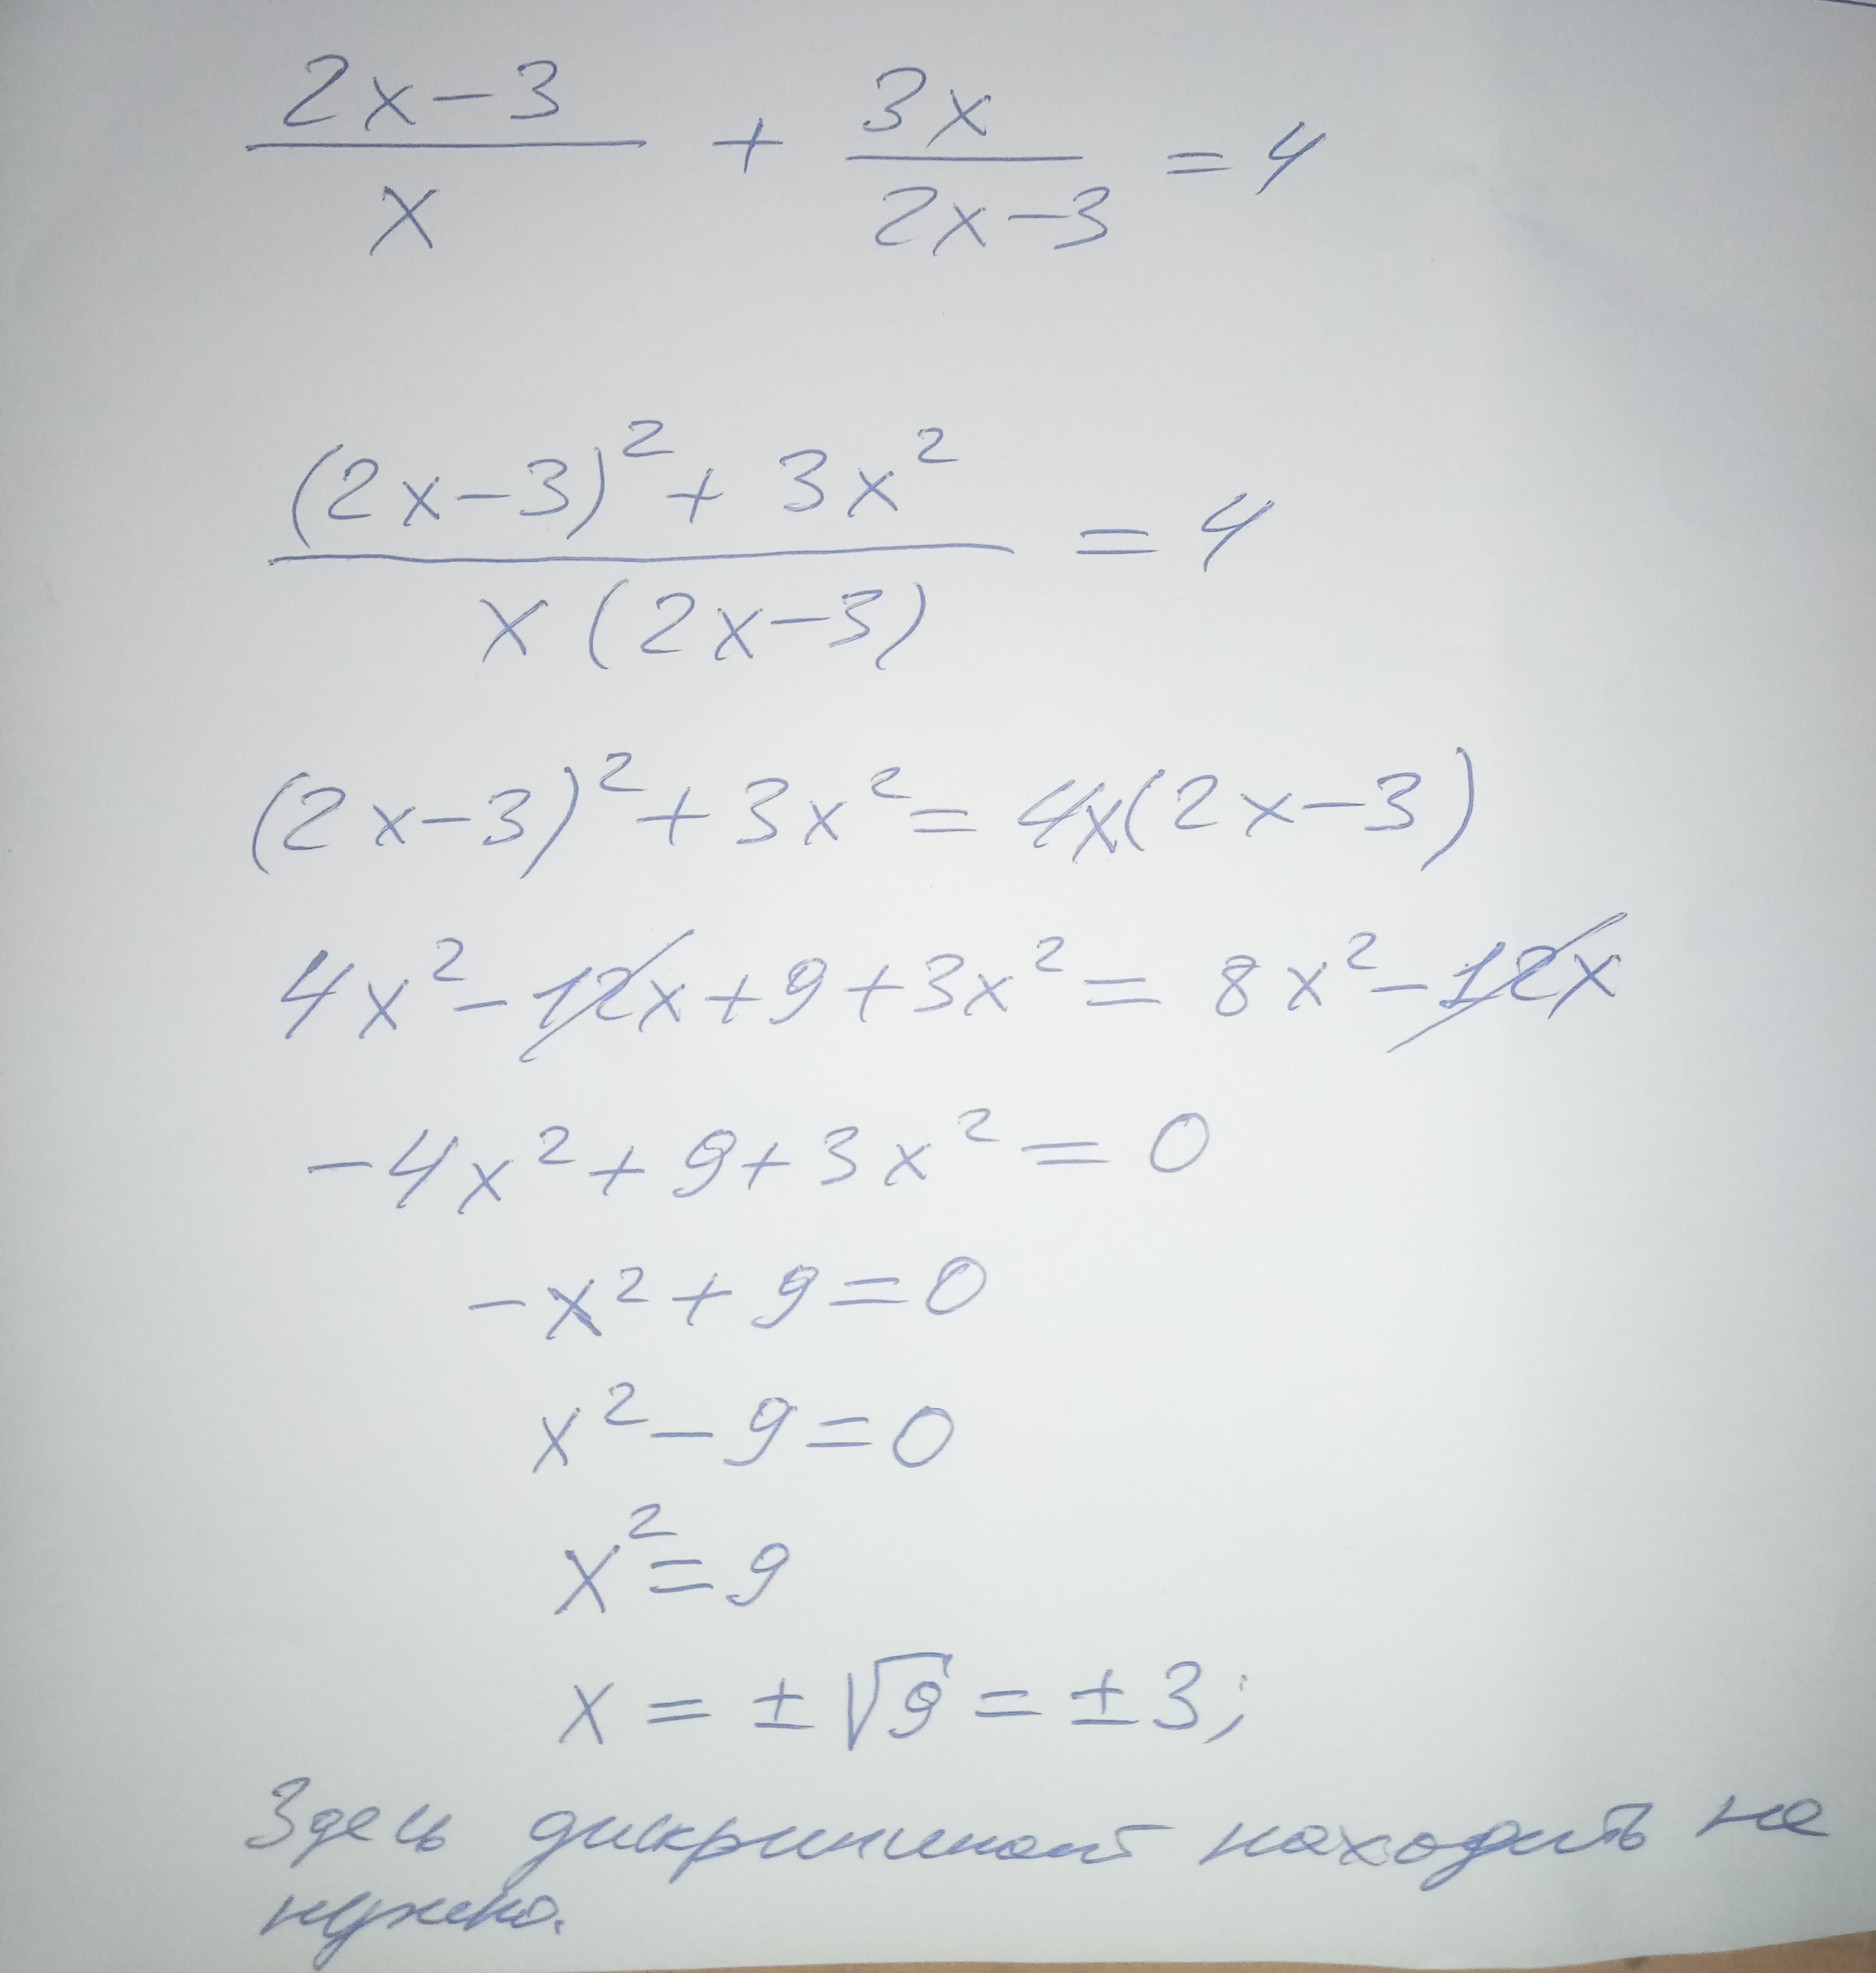 (2x-3)/x + 3x/(2x-3) = 4
((2x-3)² + 3x²)/(x(2x-3)) = 4
(2x-3)² + 3x² = 4x(2x-3)
4x² - 12x + 9 + 3x² = 8x² - 12x
-4x² + 9 + 3x² = 0
-x² + 9 = 0
x² - 9 = 0
x² = 9
x = ± √9 = ± 3;
Здесь дискриминант находить не
нужно.